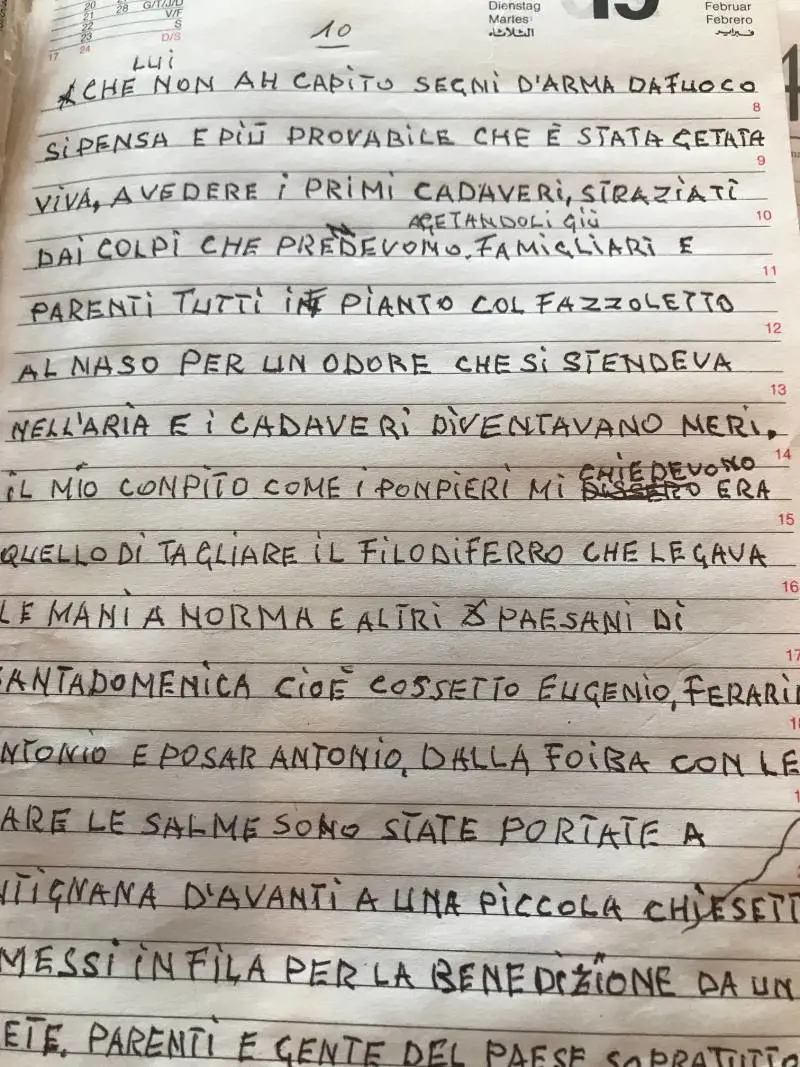 20 G/T/J/D
21 28 V/F
22 S
23 D/S
17 24
Dienstag
Martes
الثلاثاء
19
Februar
Febrero
فبراير
10
LUI
CHE NON AH CAPITO SEGNI D'ARMA DAFUOCO
8
SI PENSA E PIÙ PROVABILE CHE È STATA GETATA
9
VIVA, A VEDERE I PRIMI CADAVERI, STRAZIATI
10
AGETANDOLI GIÙ
DAI COLPI CHE PRENDEVONO. FAMIGLIARI E
11
PARENTI TUTTI IN PIANTO COL FAZZOLETTO
12
AL NASO PER UN ODORE CHE SI STENDEVA
13
NELL'ARIA E I CADAVERI DIVENTAVANO NERI.
14
CHIEDEVONO
IL MIO CONPITO COME I PONPIERI MI DISSERO ERA
15
QUELLO DI TAGLIARE IL FILODIFERRO CHE LEGAVA
16
LE MANI A NORMA E ALTRI PAESANI DI
17
SANTADOMENICA CIOÈ COSSETTO EUGENIO, FERARI
NTONIO E POSAR ANTONIO. DALLA FOIBA CON LE
ARE LE SALME SONO STATE PORTATE A
NTIGNANA D'AVANTI A UNA PICCOLA CHIESETT
MESSI IN FILA PER LA BENEDIZIONE DA UN
ETE. PARENTI E GENTE DEL PAESE SOPRATUTTO